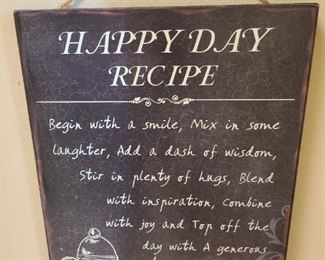 HAPPY DAY
RECIPE
Begin with a smile, Mix in some
laughter, Add a dash of wisdom,
Stir in plenty of hugs, Blend
with inspiration, Combine
with joy and Top off the
day with A generous